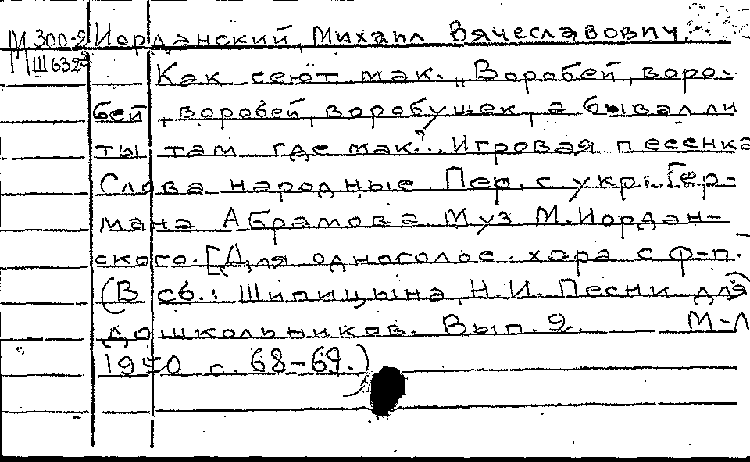 М 300-2 Иорданский, Михаил Вячеславович.
М Ш 632
Как сеют мак. „Воробей, воро-
бей, воробей, воробушек, а бывал ли
ты там где мак?.. Игровая песенка
Слова народные Пер. с укр. Гер-
мана Абрамова Муз М. Иордан-
ского. [Для одноголос. хора с ф-п.
(В сб.: Шипицына, Н.И. Песни для
дошкольников. Вып. 9. М-Л
с. 68-69.)